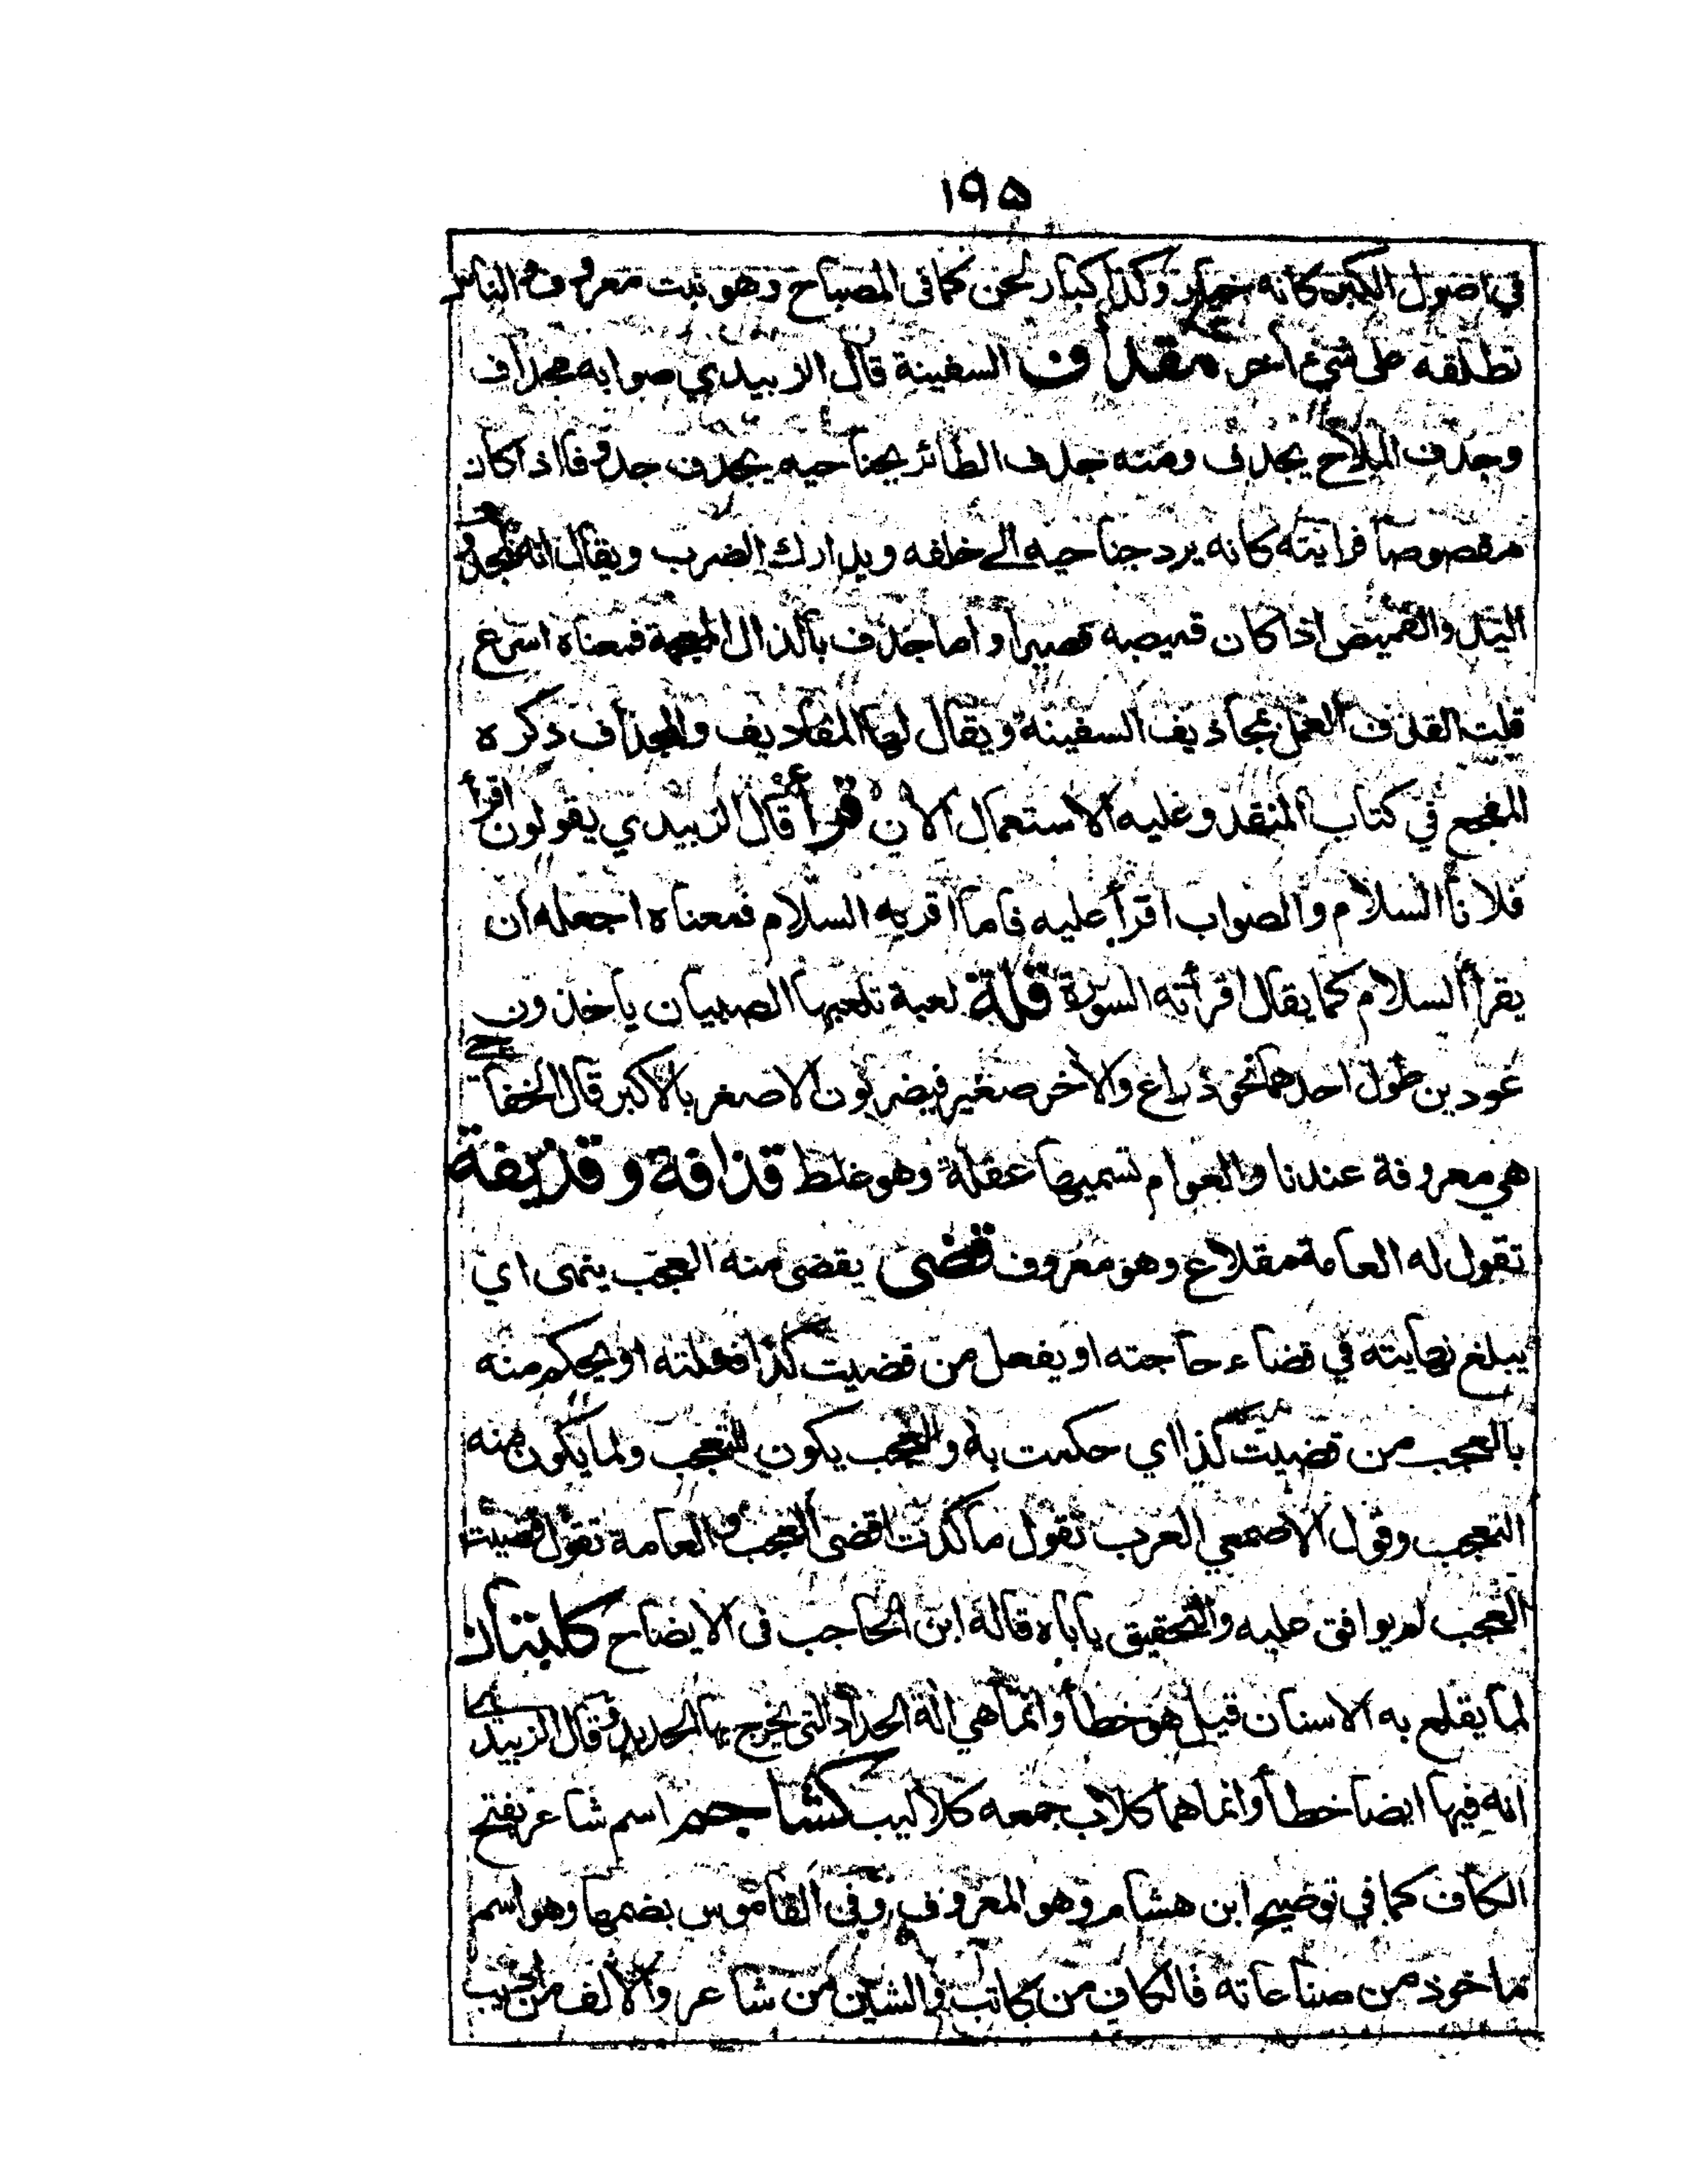 ١٩٥
في اصول الكبر كانه خماير وكذا كبار لحن كما في المصباح وهو نبت معروف والناس
تطلقه على شيء آخر مقداف السفينة قال الزبيدي صوابه مجداف
وجدف الملاح يجدف ومنه جدف الطائر بجناحيه يجدف جدوفا اذا كان
مقصوصا فرايته كانه يرد جناحيه الى خلفه ويدارك الضرب ويقال انه لمجدوف
اليد والقميص اذا كان قميصه قصيرا واما جذف بالذال المعجمة فمعناه اسرع
قلت القذف العمل بمجاذيف السفينة ويقال لها المقاديف والمجداف ذكره
المفجع في كتاب المنقد وعليه الاستعمال الآن قرأ قال الزبيدي يقولون اقرأ
فلانا السلام والصواب اقرأ عليه فاما اقريه السلام فمعناه اجعله ان
يقرأ السلام كما يقال اقرأته السورة قلة لعبة تلعبها الصبيان ياخذون
عودين طول احدهما نحو ذراع والآخر صغير فيضربون الاصغر بالاكبر قال الخفاجي
هي معروفة عندنا والعوام تسميها عقلة وهو غلط قذافة وقذيفة
تقول له العامة مقلاع وهو معروف قضى يقضى منه العجب ينهى اي
يبلغ نهايته في قضاء حاجته او يفعل من قضيت كذا فعلته او يحكم منه
بالعجب من قضيت كذا اي حكمت به والعجب يكون للتعجب ولما يكون منه
التعجب وقول الاصمعي العرب تقول ما كدت اقضى العجب والعامة تقول قضيت
العجب لم يوافق عليه والتحقيق ياباه قاله ابن الحاجب في الايضاح كلبتان
لما يقلع به الاسنان قيل هو خطأ وانما هي الة الحداد التي يخرج بها الحديد وقال الزبيدي
انه فيها ايضا خطأ وانما هما كلاب جمعه كلاليب كشاجم اسم شاعر بفتح
الكاف كما في توضيح ابن هشام وهو المعروف وفي القاموس بضمها وهو اسم
ماخوذ من صناعاته فالكاف من كاتب والشين من شاعر والالف من